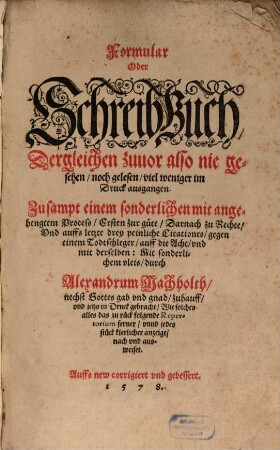 Formular
Oder
SchreibBuch/
Dergleichen zuuor also nie ge-
sehen/ noch gelesen/ viel weniger im
Druck ausgangen.
Zusampt einem sonderlichen mit ange-
hengtem Process/ Ersten zur güte/ Darnach zu Rechte/
Vnd auffs letzte drey peinliche Citationes/ gegen
einem Todtschleger/ auff die Acht/ vnd
mit derselben: Mit sonderli-
chem vleis/ durch
Alexandrum
nechst Gottes gab vnd gnad/ zuhauff/
vnd jetzo in Druck gebracht/ Wie solches
alles das zu rück folgende Reper-
torium ferner/ vnnd jedes
stück klerlicher anzeigt/
nach vnd aus-
weiset.
Auffs new corrigiert vnd gebessert.
1578.